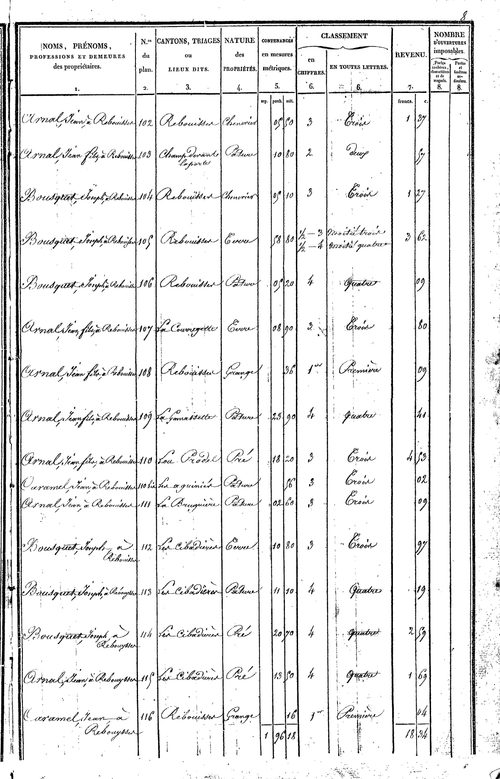 8
NOMS, PRÉNOMS, PROFESSIONS ET DEMEURES des propriétaires. 1.
N.os du plan. 2.
CANTONS, TRIAGES OU LIEUX DITS. 3.
NATURE des PROPRIÉTÉS. 4.
CONTENANCES en mesures métriques. 5.
CLASSEMENT
en CHIFFRES. 6.
EN TOUTES LETTRES. 6.
REVENU. 7.
NOMBRE D'OUVERTURES imposables.
8. 8.
francs. c.
Arnal, Jean, à Rebouisses 102 Rebouisses Chenevier 05 50 3 Trois 1 37
Arnal, Jean fils, à Rebouisses 103 Champ devant laporte Pâture 10 80 2 deux 57
Bousquet, Joseph, à Rebouisses 104 Rebouisses Chenevier 05 10 3 Trois 1 27
Bousquet, Joseph, à Rebouisses 105 Rebouisses Terre 58 80 ½ – 3 moitié trois 3 62
½ – 4 moitié quatre
Bousquet, Joseph, à Rebouisses 106 Rebouisses Pâture 05 20 4 quatre 09
Arnal, Jean fils, à Rebouisses 107 La Couregette Terre 08 90 3 Trois 80
Arnal, Jean fils, à Rebouisses 108 Rebouisses Grange 36 1ere Première 09
Arnal, Jean fils, à Rebouisses 109 La Pâture 23 90 4 quatre 41
Arnal, Jean fils, à Rebouisses 110 Lou Pradel Pré 18 20 3 Trois 4 53
Caramel, Jean, à Rebouisses 110 bis Les aguinies Pâture 56 3 Trois 02
Arnal, Jean, à Rebouisses 111 La Bruguière Pâture 02 60 3 Trois 09
Bousquet, Joseph, à Rebouisses 112 Les Cibadières Terre 10 80 3 Trois 97
Bousquet, Joseph, à Rebouysses 113 Les Cibadières Pâture 11 10 4 quatre 19
Bousquet, Joseph, à Rebouysses 114 Les Cibadières Pré 20 70 4 quatre 2 59
Arnal, Jean, à Rebouysses 115 Les Cibadières Pré 13 50 4 quatre 1 69
Caramel, Jean à Rebouysses 116 Rebouisses Grange 16 1ere Première 04
1 96 18 18 34